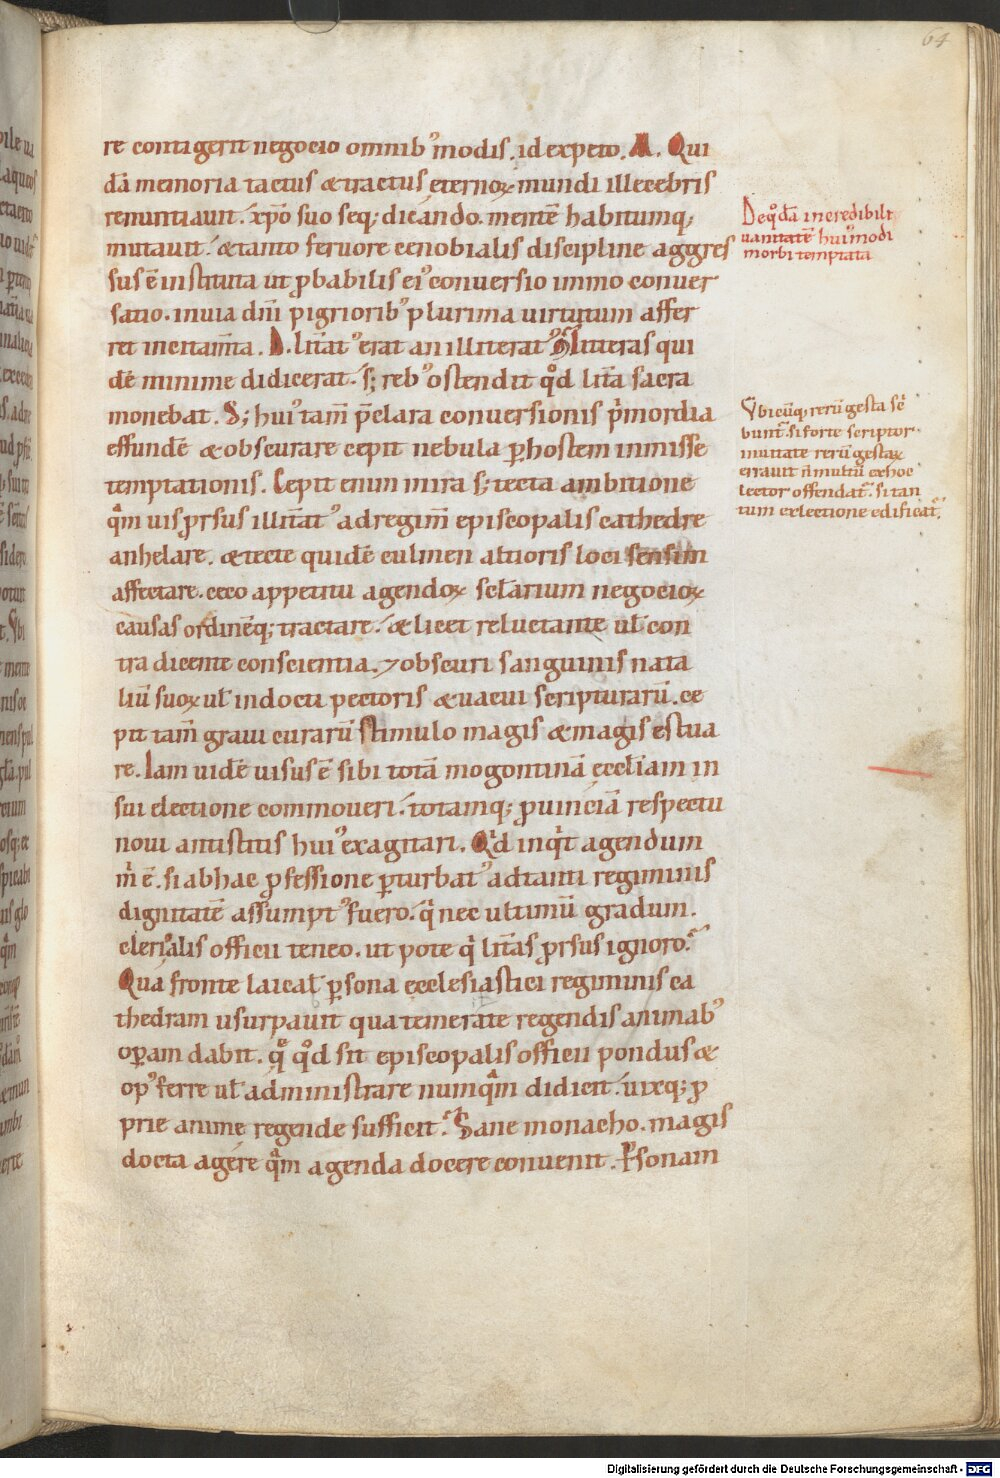 64
re contigerit negocio omnib᾽ modis. id expeto. M. Qui
dā memoria tactus & tractus eternoꝝ mundi illecebris
renuntiauit. xp̄o suo seq; dicando. mentē habitumq;
mutauit. & tanto feruore cenobialis discipline aggres
sus ē instituta ut ꝓbabilis ei᾽ conuersio immo conuer
satio. in uia dn̄i pigriorib᾽ plurima uirtutum affer
ret incitam̄ta. D. litt̄at᾽ erat an illiterat᾽ M. litteras qui
dē minime didicerat. s; reb᾽ ostendit qd̄ litt̄a sacra
monebat. S; hui᾽ tam̄ p̄clara conuersionis p̄mordia
effundē & obscurare cepit nebula ꝑ hostem inmisse
temptationis. Cepit enim mira s; tecta ambitione
qͣm uis prsus illitt̄at᾽ ad regim̄ episcopalis cathedre
anhelare. & tecte quidē culmen altioris loci sensim
affectare. ceco appetitu agendoꝝ sclarium negocioꝝ
causas ordinēq; tractare. & licet reluctante ul̄ con
tradicente conscientia. 7 obscuri sanguinis nata
liū suoꝝ ul̄ indocti pectoris & uacui scripturarū. ce
pit tam̄ graui curarū stimulo magis & magis estua
re. Iam uidē uisus ē sibi totā mogontinā eccl̄iam in
sui electione commoueri. totamq; ꝓuinciā respectu
noui antistitis hui᾽ exagitari. Qͥd inqͥt agendum
m̄ ē. si ab hac ꝓfessione ꝑturbat᾽ ad tanti regiminis
dignitatē assumpt᾽ fuero. qͥ nec ultimū gradum.
clericalis officii teneo. ut pote qͥ litt̄as prsus ignoro.
Qua fronte laical̄ ꝑsona ecclesiastici regiminis ca
thedram usurpauit qua temeritate regendis animab᾽
oꝑam dabit. q̄ qd̄ sit episcopalis officii pondus &
op᾽ ferre ul̄ administrare numqͣm didicit. uixq; ꝓ
prie anime regende sufficit. Sane monacho. magis
docta agere qͣm agenda docere conuenit. Psonam
De qdā incredibili
uanitatē hui᾽modi
morbi temptata
Vbicūq; rerū gesta sc̄
bunt. si forte scriptor
in uitate rerū gestaꝝ
errauit n̄ multū ex hoc
lector offendat. si tan
tum ex lectione edificat.
Digitalisierung gefördert durch die Deutsche Forschungsgemeinschaft - DFG